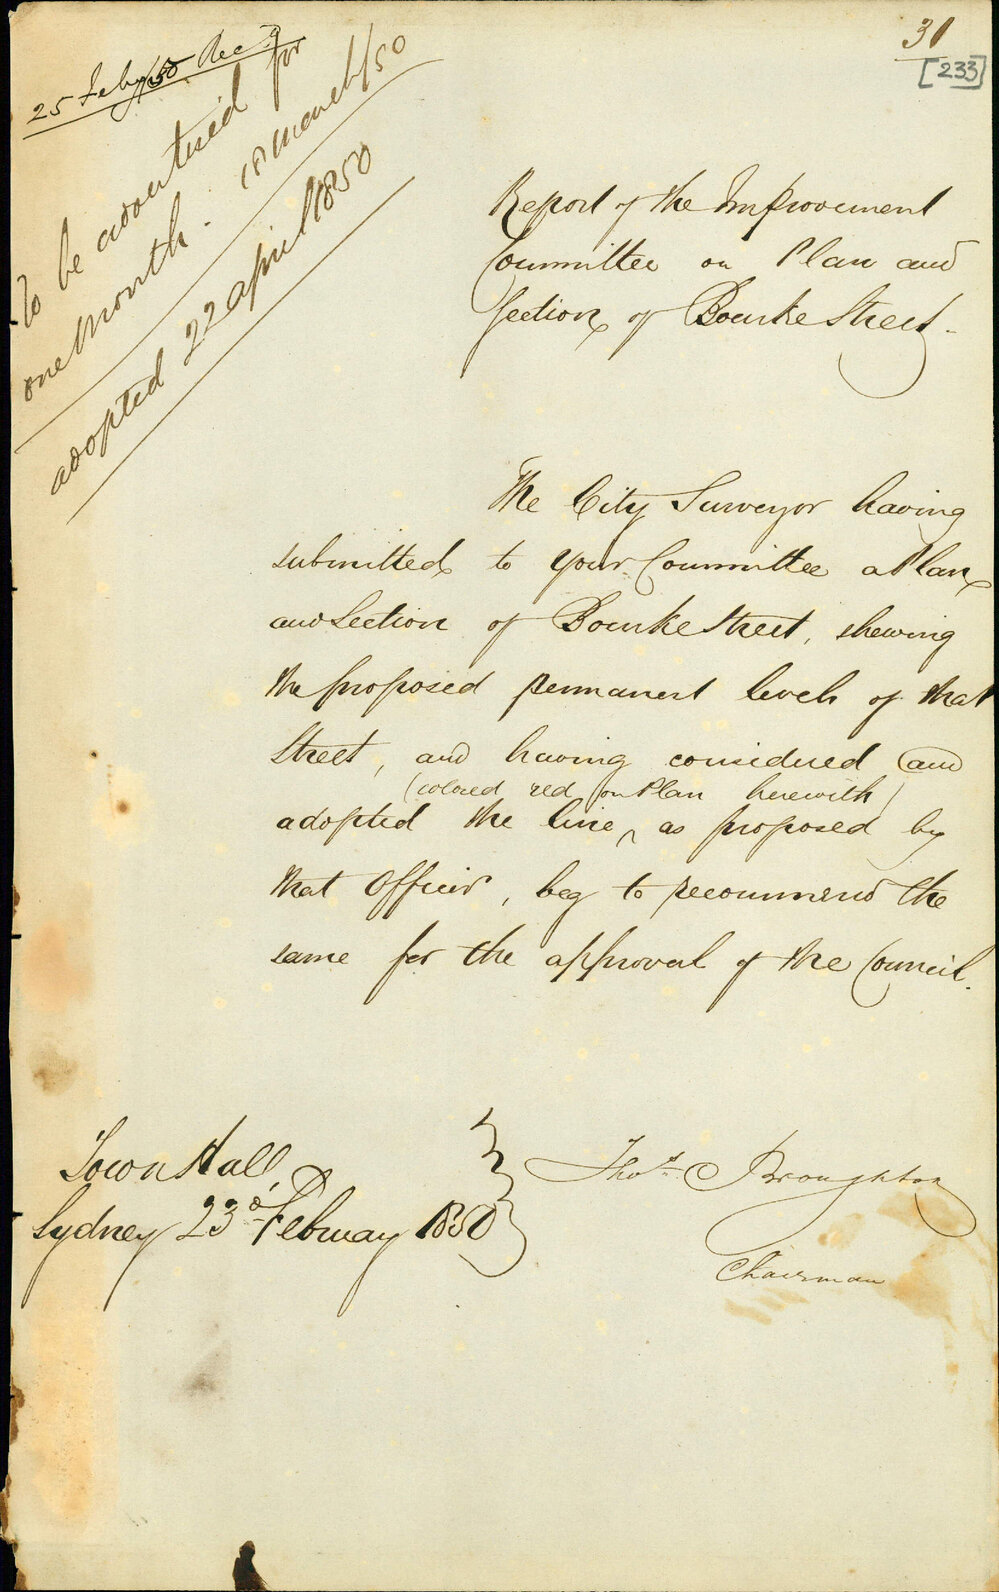 31
[233]
25 Feby/50 Rec.d
to be advertised for
one Month. 18 March/50
adopted 22 april 1850
Report of the Improvement
Committee on Plan and
Section of Bourke Street.
The City Surveyor having
submitted to your Committee a Plan
and Section of Bourke Street, shewing
the proposed permanent levels of that
Street, and having considered (and
(colored red on Plan herewith)
adopted the line ^ as proposed by
that Officer, beg to recommend the
same for the approval of the Council.
Town Hall,
Sydney 23d February 1850
Thos. C Broughton
Chairman